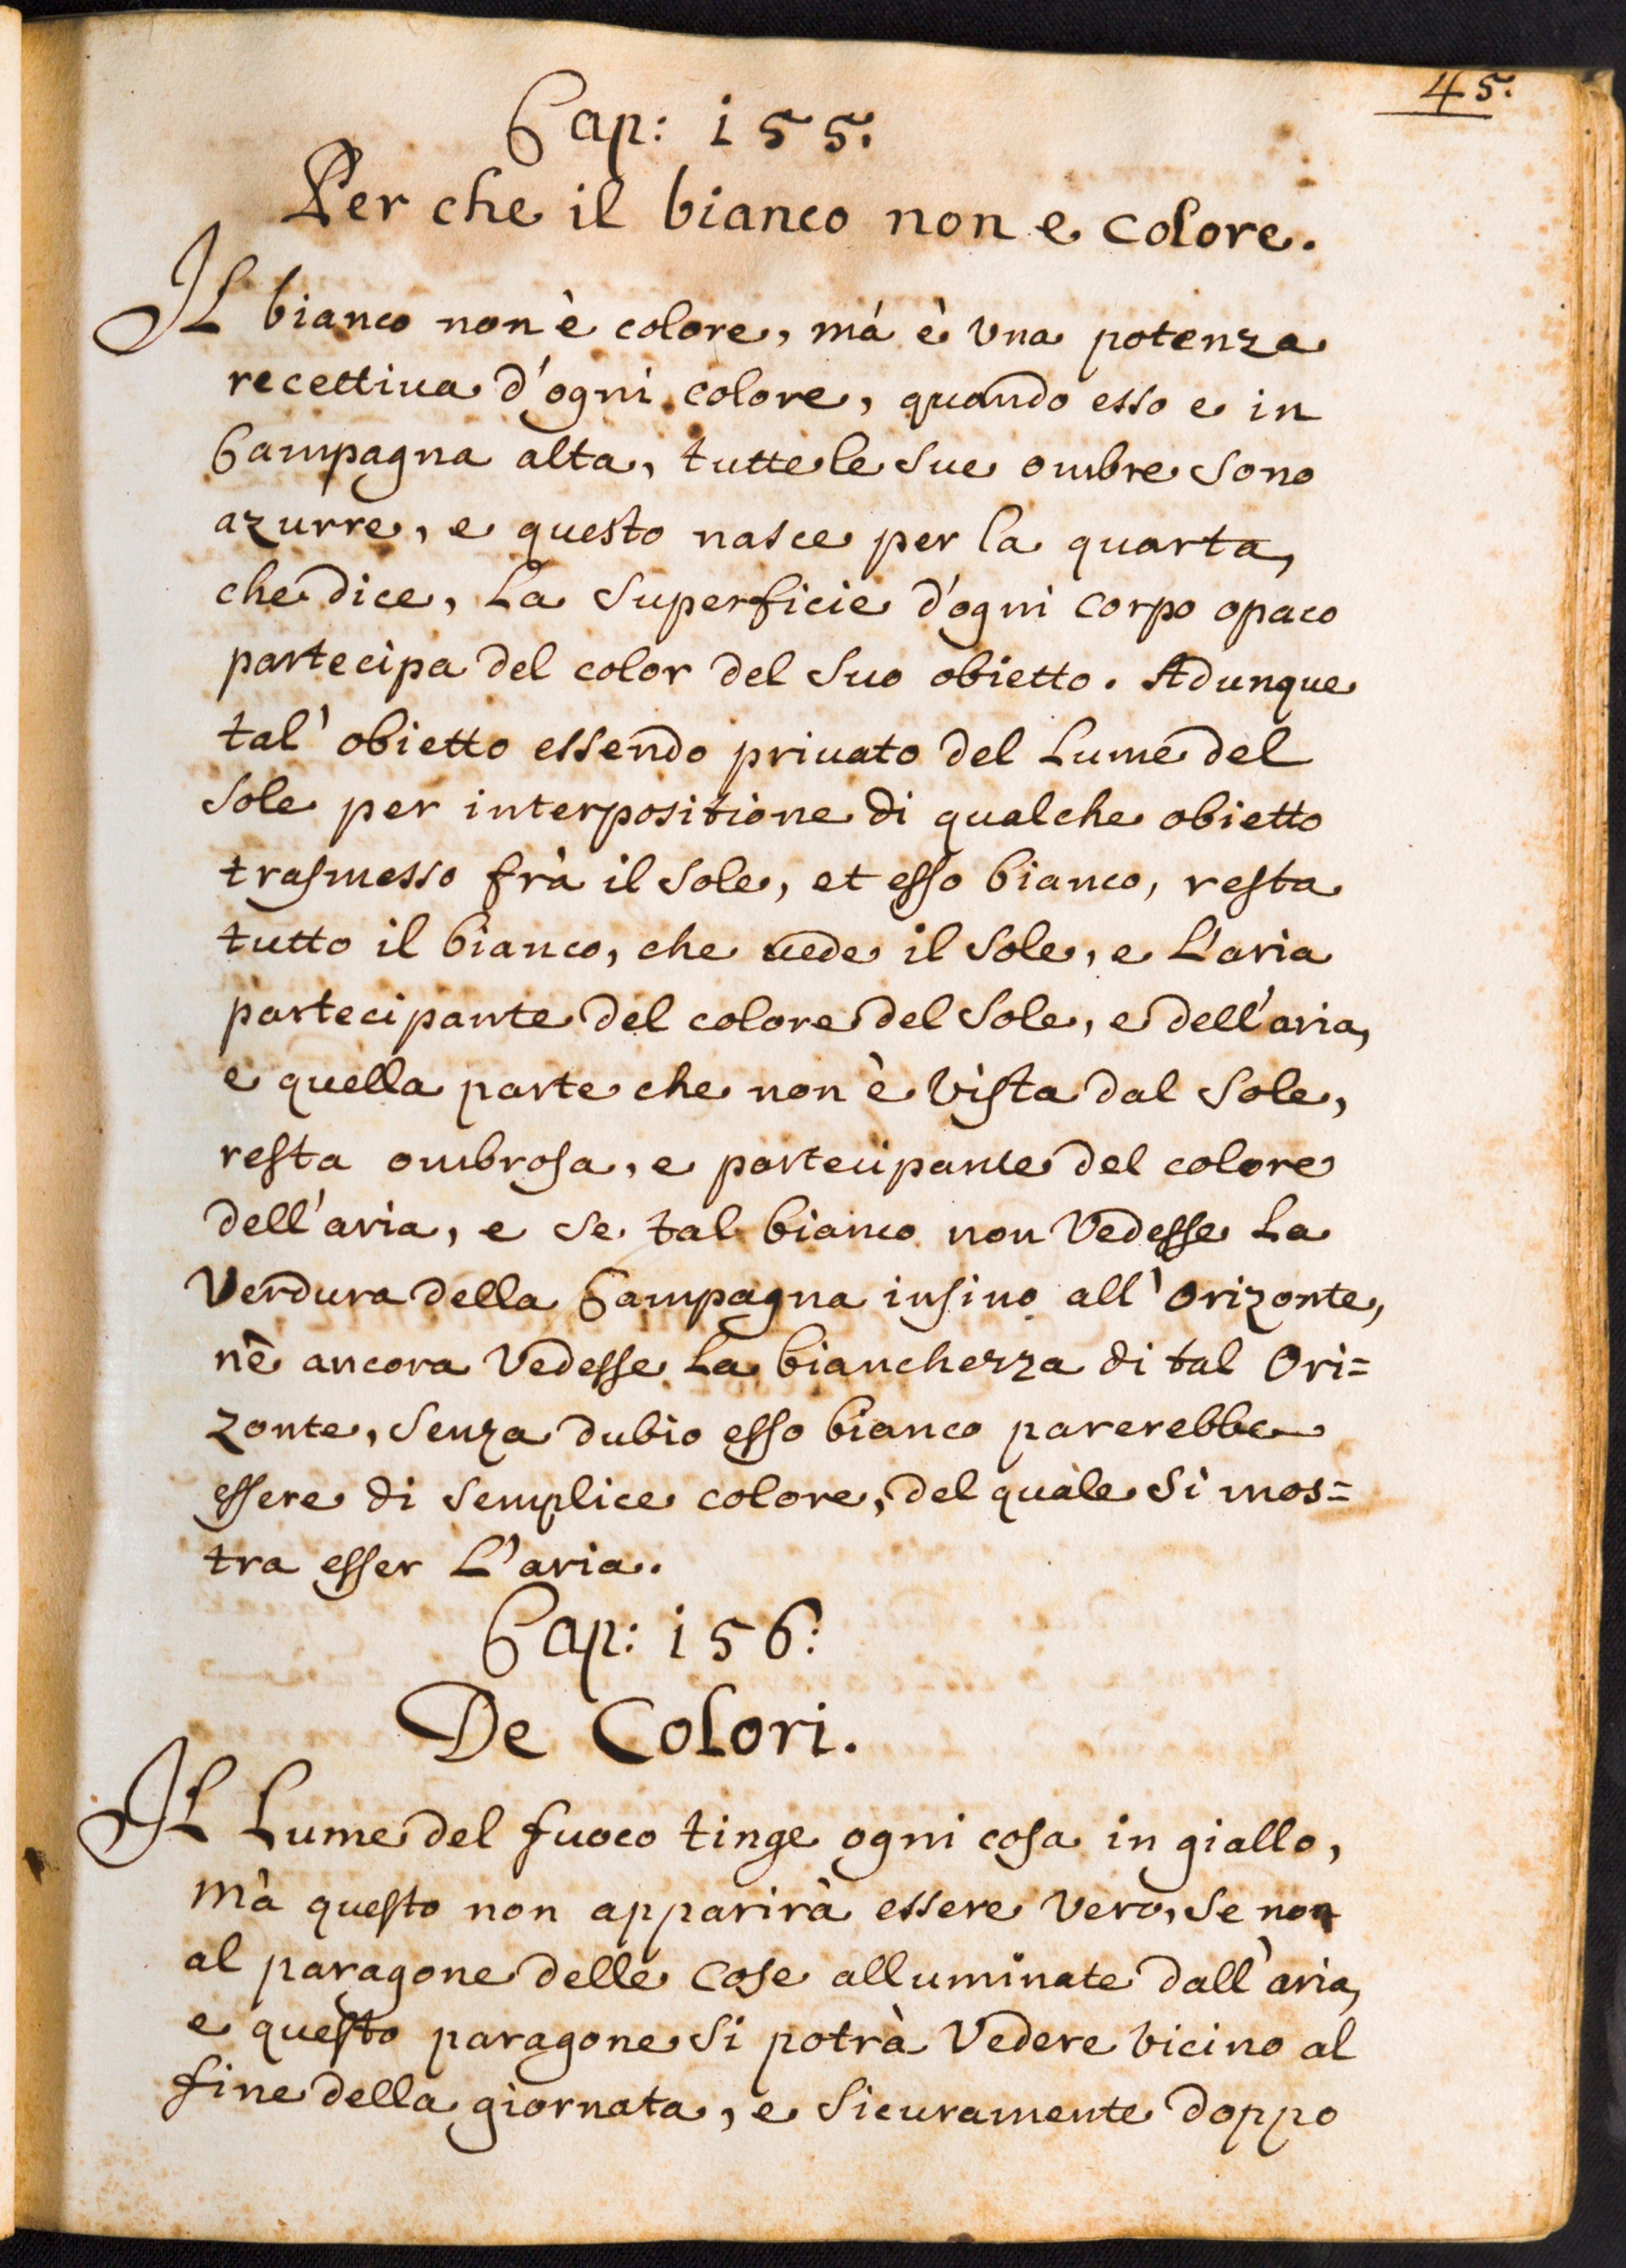 45.
Cap: 155.
Per che il bianco non e colore.
IL bianco non è colore, mà è Vna potenza
recettiua d'ogni colore, quando esso e in
Campagna alta, tutte le sue ombre sono
azurre, e questo nasce per la quarta,
che dice, La Superficie d'ogni corpo opaco
partecipa del color del suo obietto. Adunque
tal' obietto essendo priuato del Lume del
Sole per interpositione di qualche obietto
trasmesso frà il Sole, et esso bianco, resta
tutto il bianco, che uede il Sole, e L'aria
partecipante del colore del Sole, e dell'aria,
e quella parte che non è Vista dal Sole,
resta ombrosa, e partecipante del colore
dell'aria, e se tal bianco non Vedesse La
Verdura della Campagna insino all'Orizonte,
nè ancora Vedesse La bianchezza di tal Ori=
zonte, Senza dubio esso bianco parerebbe
essere di Semplice colore, del quale si mos=
tra esser L'aria.
Cap: 156:
De Colori.
IL Lume del fuoco tinge ogni cosa in giallo,
mà questo non apparirà essere Vero, se non
al paragone delle cose alluminate dall'aria,
e questo paragone si potrà Vedere Vicino al
fine della giornata, e Sicuramente doppo